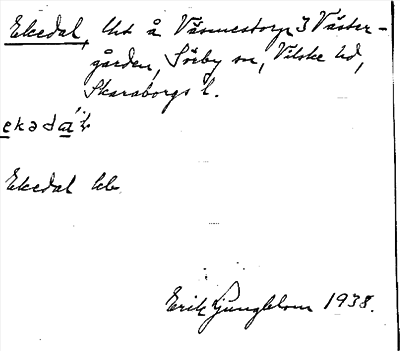 Ekedal, lht å Väsmestorp 3 Väster-
gården, Sörby sn, Vilske hd,
Skaraborgs l.
ekəda
Ekedal lht
Erik Ljungblom 1938.